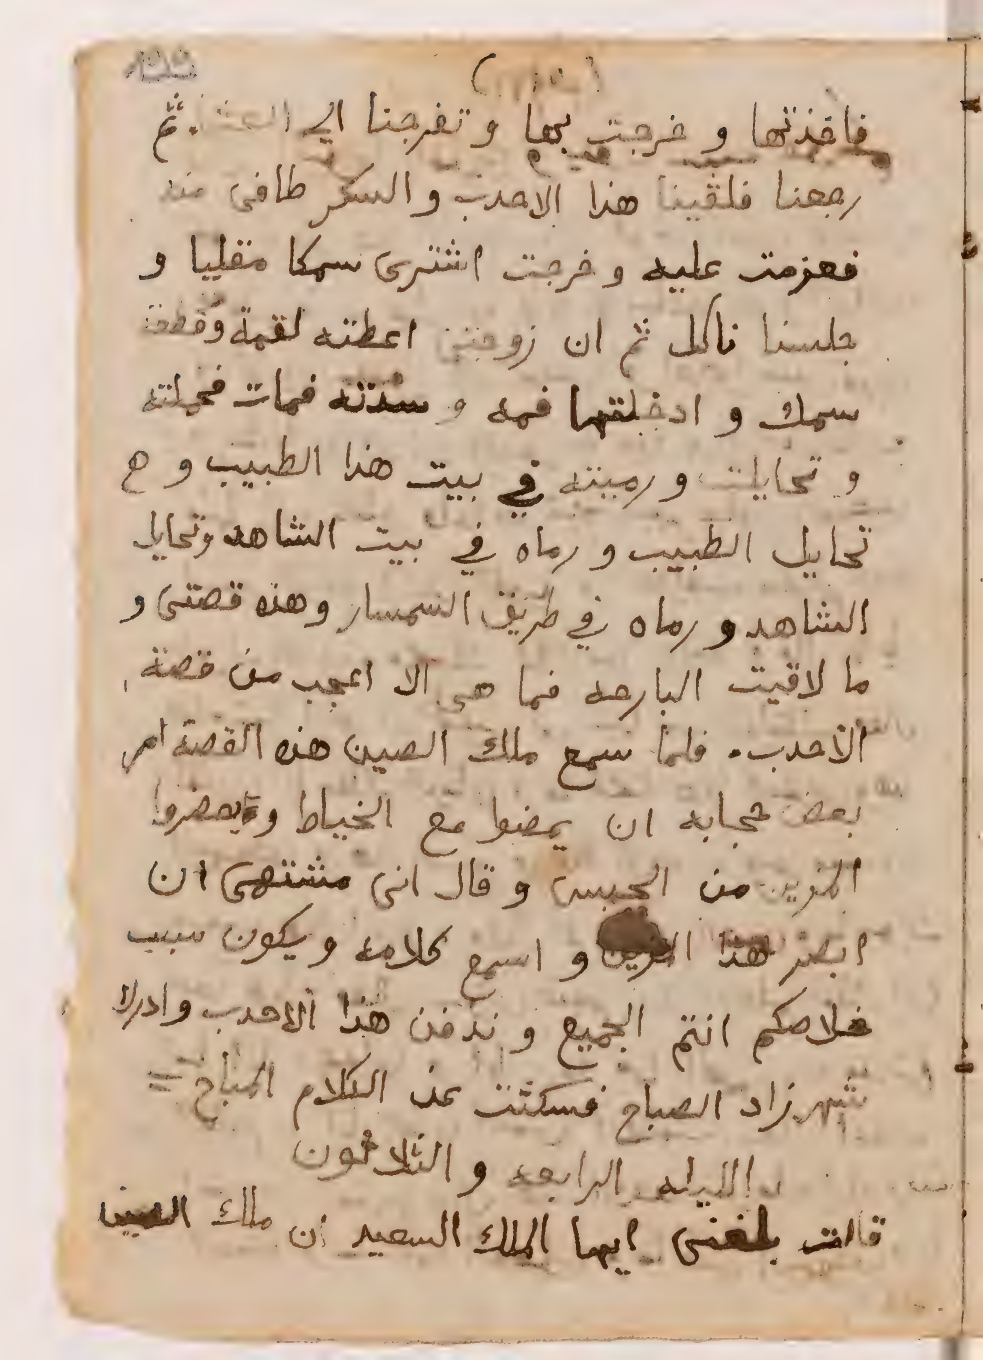 فاخذتها و خرجت بها و تفرجنا الي العشا. ثم
رجعنا فلقينا هذا الاحدب و السكر طافى منه
فعزمت عليه و خرجت اشترى سمكا مقليا و
جلسنا ناكل ثم ان زوجتى اعطته لقمة وقطعة
سمك و ادخلتها فمه و سدته فمات فحملته
و تحايلت و رميته في بيت هذا الطبيب و
تحايل الطبيب و رماه في بيت الشاهد وتحايل
الشاهد و رماه في طريق السمسار و هذه قصتى و
ما لاقيت البارحه فما هى الا اعجب من قصة
الاحدب. فلما سمع ملك الصين هذه القصة امر
بعض حجابه ان يمضوا مع الخياط و يحضروا
المزين من الحبس و قال انى مشتهى ان
ابصر هذا المزين و اسمع كلامه و يكون سبب
خلاصكم انتم الجميع و ندفن هذا الاحدب و ادرك
شهرزاد الصباح فسكتت عن الكلام المباح =
الليله الرابعه و الثلاثون
قالت بلغنى ايها الملك السعيد ان ملك الصين